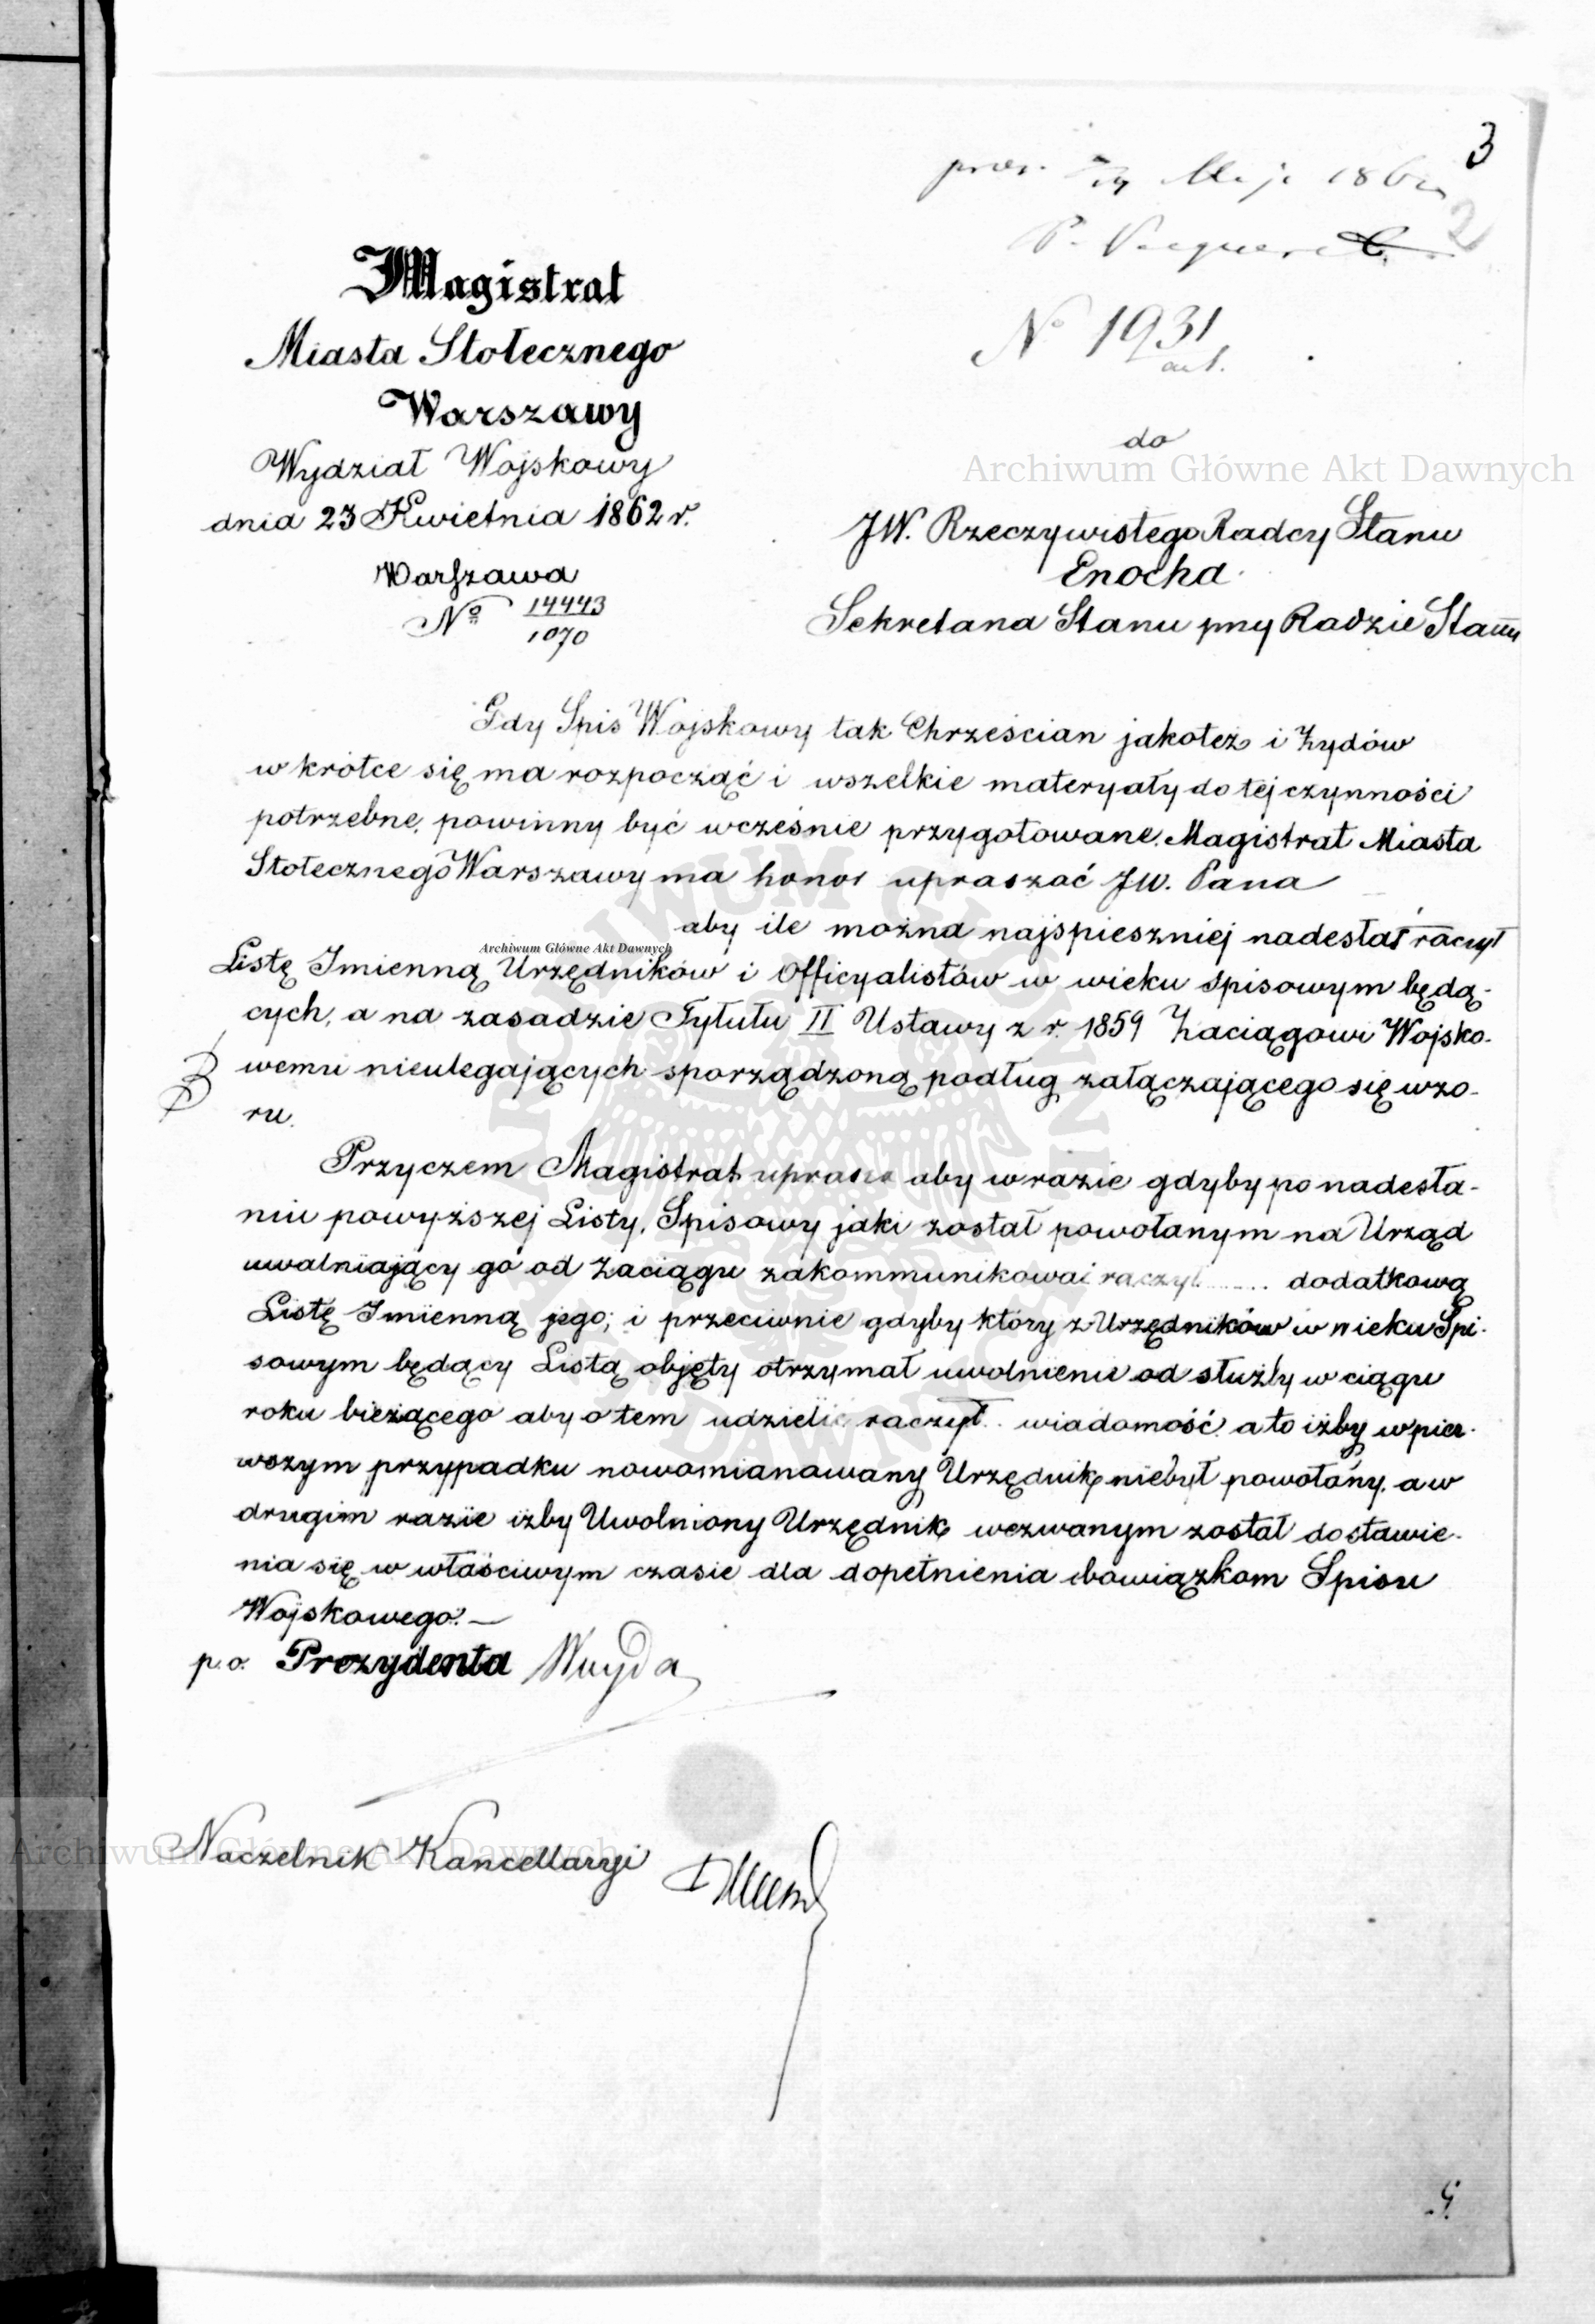 3
prez. Maja 1862
2
No 1931
do
Magistrat
Miasta Stołecznego
Warszawy
Wydział Wojskowy
dnia 23 Kwietnia 1862 r.
Warszawa
No 14443
1070
JW. Rzeczywistego Radcy Stanu
Enocha
Sekretarza Stanu przy Radzie Stanu
Gdy Spis Wojskowy tak Chrześcian jakoteż i Żydów
wkrótce się ma rozpocząć i wszelkie materyały do tej czynności
potrzebne, powinny być wcześnie przygotowane. Magistrat Miasta
Stołecznego Warszawy ma honor upraszać JW. Pana
aby ile można najspieszniej nadesłać raczył
Listę Imienną Urzędników i Officyalistów w wieku spisowym będą-
cych, a na zasadzie Tytułu II Ustawy z r. 1859 Zaciągowi Wojsko-
wemu nieulegających sporządzoną podług załączającego się wzo-
ru.
Przyczem Magistrat uprasza aby w razie gdyby po nadesła-
niu powyższej Listy, Spisowy jaki został powołanym na Urząd
uwalniający go od Zaciągu zakommunikować raczył dodatkową
Listę Imienną jego; i przeciwnie gdyby który z Urzędników w wieku Spi-
sowym będący Listą objęty otrzymał uwolnienie od służby w ciągu
roku bieżącego aby o tem udzielić raczył wiadomość, a to iżby w pier-
wszym przypadku nowomianowany Urzędnik niebył powołany, a w
drugim razie iżby Uwolniony Urzędnik wezwanym został do stawie-
nia się w właściwym czasie dla dopełnienia obowiązkom Spisu
Wojskowego.—
p.o. Prezydenta Woyda
Naczelnik Kancellaryi
5.
Archiwum Główne Akt Dawnych
Archiwum Główne Akt Dawnych
Archiwum Główne Akt Dawnych